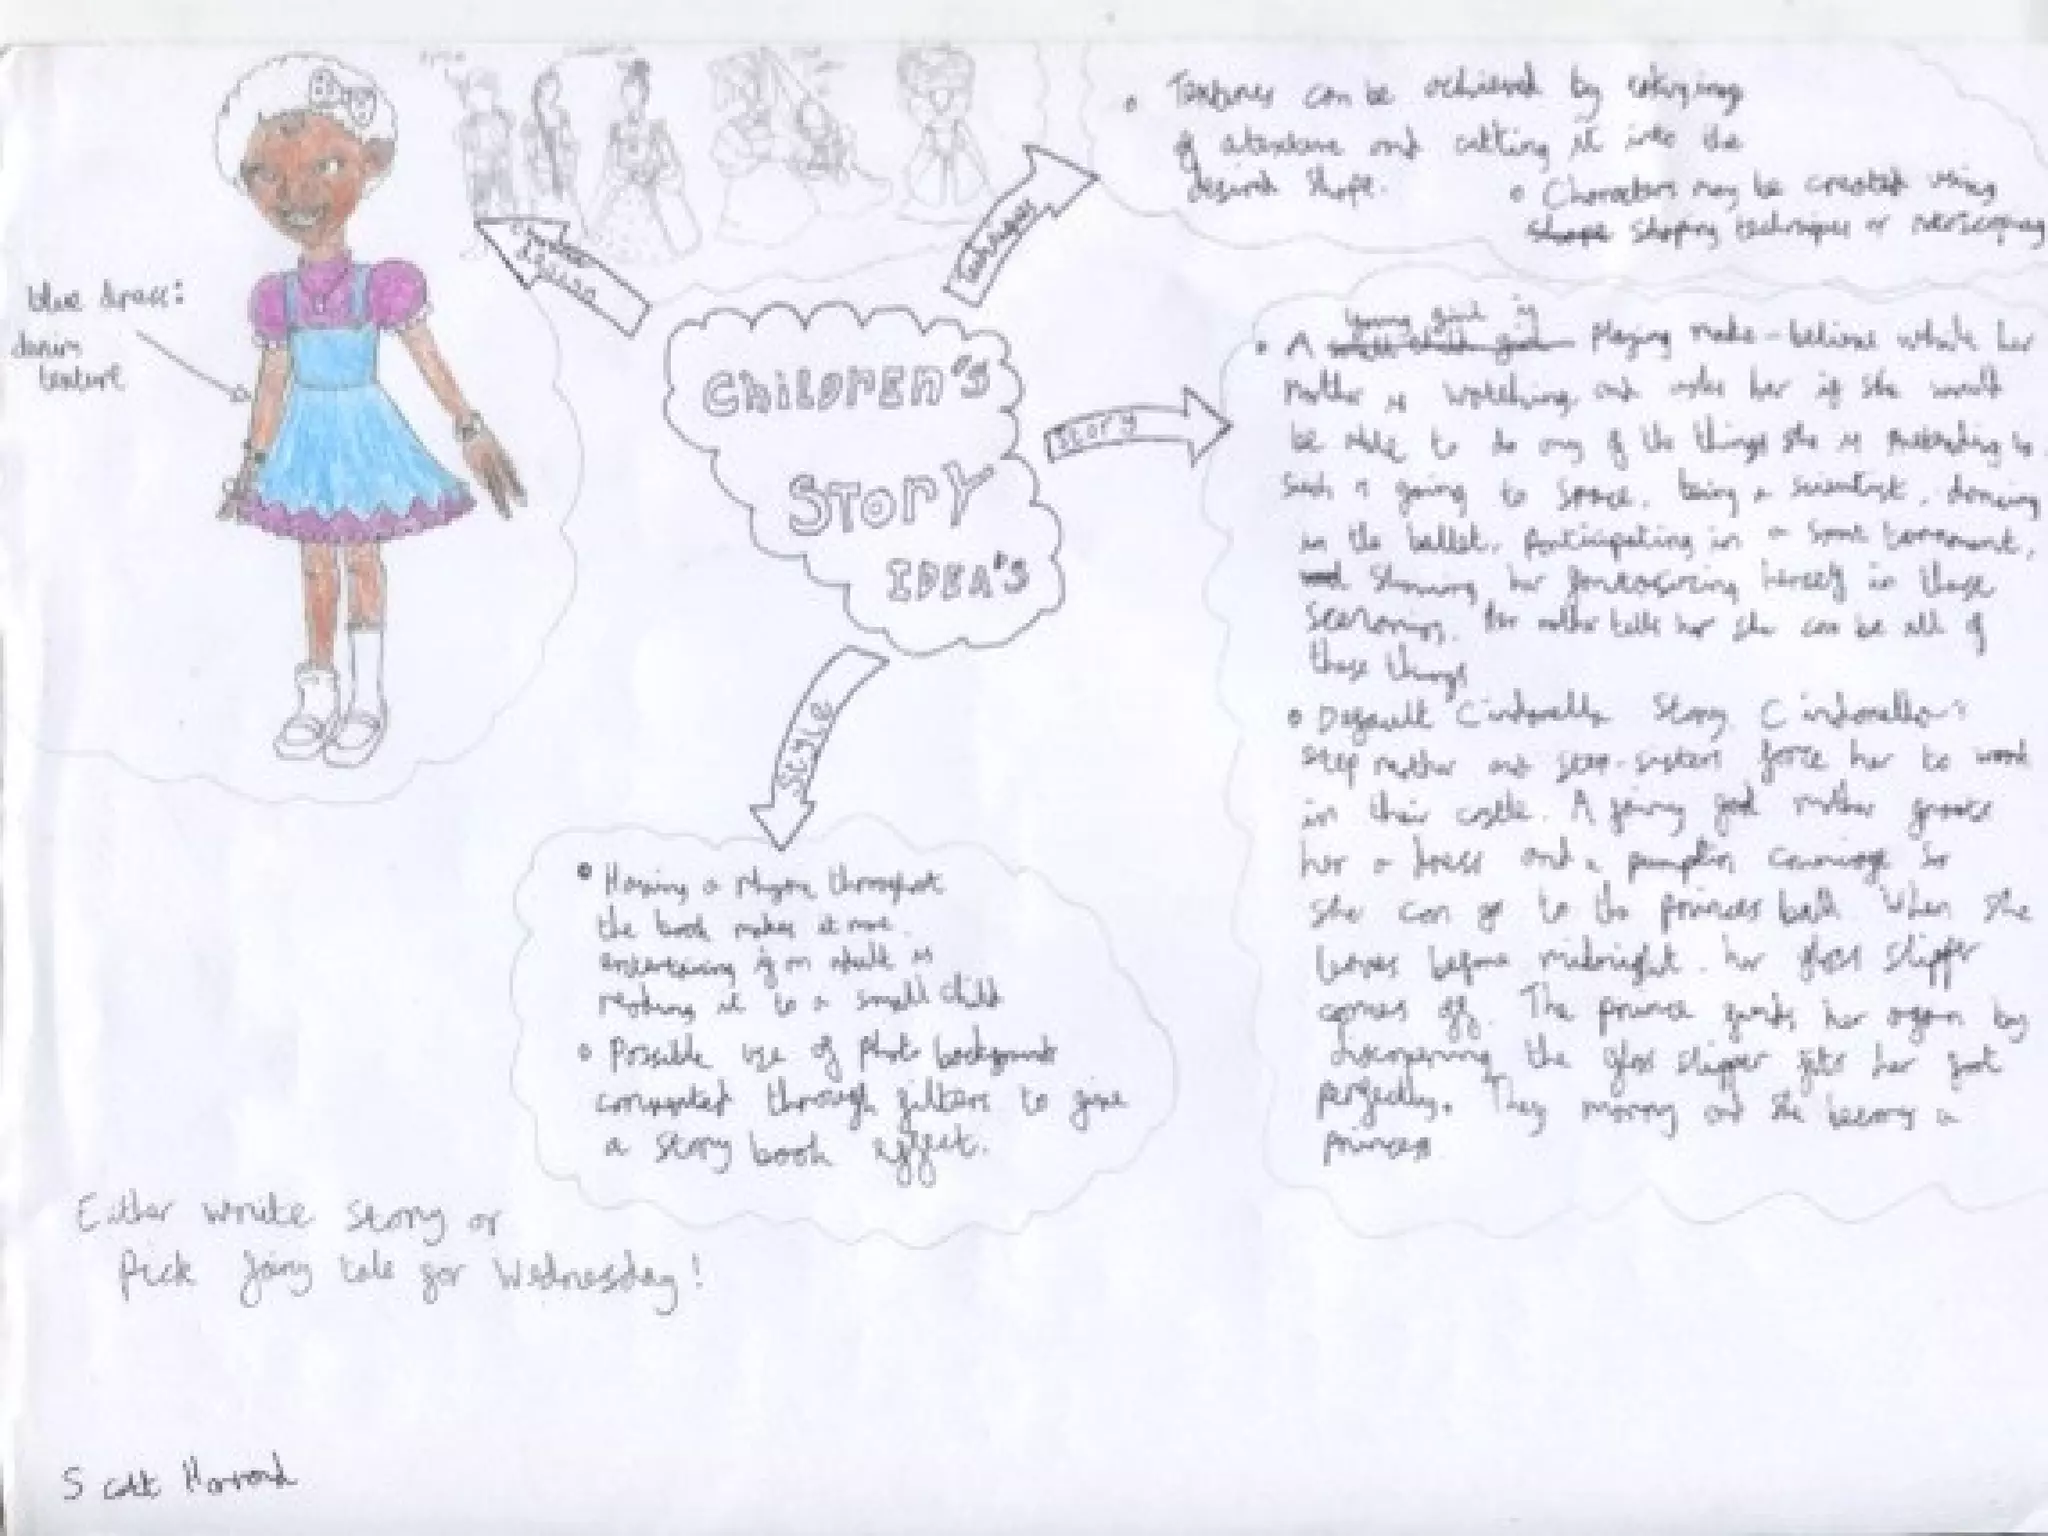 CHILDREN'S
STORY
IDEA'S
Character
design
blue dress:
denim
texture
Techniques
• Textures can be achieved by copying
of a texture and cutting it into the
desired shape.
• Characters may be created using
shape shaping techniques or
Story
young girl is
• A small child girl playing make-believe while her
mother is watching and asks her if she would
be able to do any of the things she is pretending to
such as going to space, being a scientist, dancing
in the ballet, participating in a sport tornament,
and showing her fantasizing herself in these
scenarios. Her mother tells her she can be all of
these things
• Default Cinderella Story Cinderella's
step mother and step-sisters force her to work
in their castle. A fairy god mother grants
her a dress and a pumpkin carriage so
she can go to the princes ball. When she
leaves before midnight, her glass slipper
comes off. The prince finds her again by
discovering the glass slipper fits her foot
perfectly. They marry and she becomes a
princess
Style
• Having a rhyme throughout
the book makes it more
entertaining if an adult is
reading it to a small child
• Possible use of photo backgrounds
converted through filters to give
a story book effect.
Either write story or
Pick fairy tale for Wednesday!
Scott